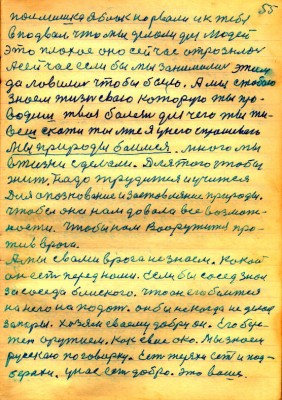 55
пол мешка яблок нарвали и к тебе
в подвал что мы делали для людей
Это плохое оно сейчас отрозилось
А сейчас если бы мы занимались этим
да ловили чтобы было. А мы с тобою
знаем жизнь свою которую ты про
водиш твоя болезн для чего ты ты
скажи ты мне я у него спрашиваю
Мы природы боимся. много мы
в жизни сделали. Для того чтобы
жит, надо трудится и учится
Для опознование и заставление природы.
чтобы она нам довала все возмож-
ности. чтобы нам вооружится про-
тив врага.
А мы свами врага не знаем. какой
он ест перед нами. Если бы сосед знал
за соседа близкого. что он его боится
на него нападат. он бы некогда не делал
запоры. Хозяин своему добру он. Его бере-
жет оружием. как свое око. Мы знаем
русскаю поговорку. Ест теряхи ест и под-
берахи. у нас ест добро. Это ваше.